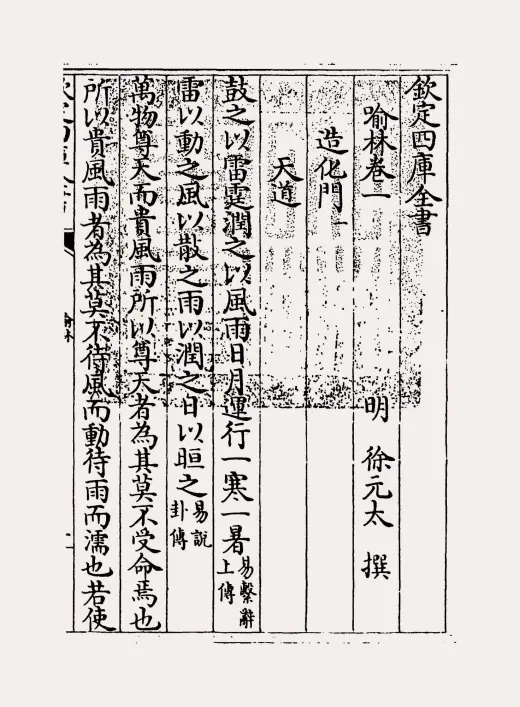 欽定四庫全書
喻林卷一
明 徐元太 撰
造化門一
天道
鼓之以雷霆潤之以風雨日月運行一寒一暑易繫辭上傳
雷以動之風以散之雨以潤之日以晅之易說卦傳
萬物尊天而貴風雨所以尊天者為其莫不受命焉也
所以貴風雨者為其莫不待風而動待雨而濡也若使